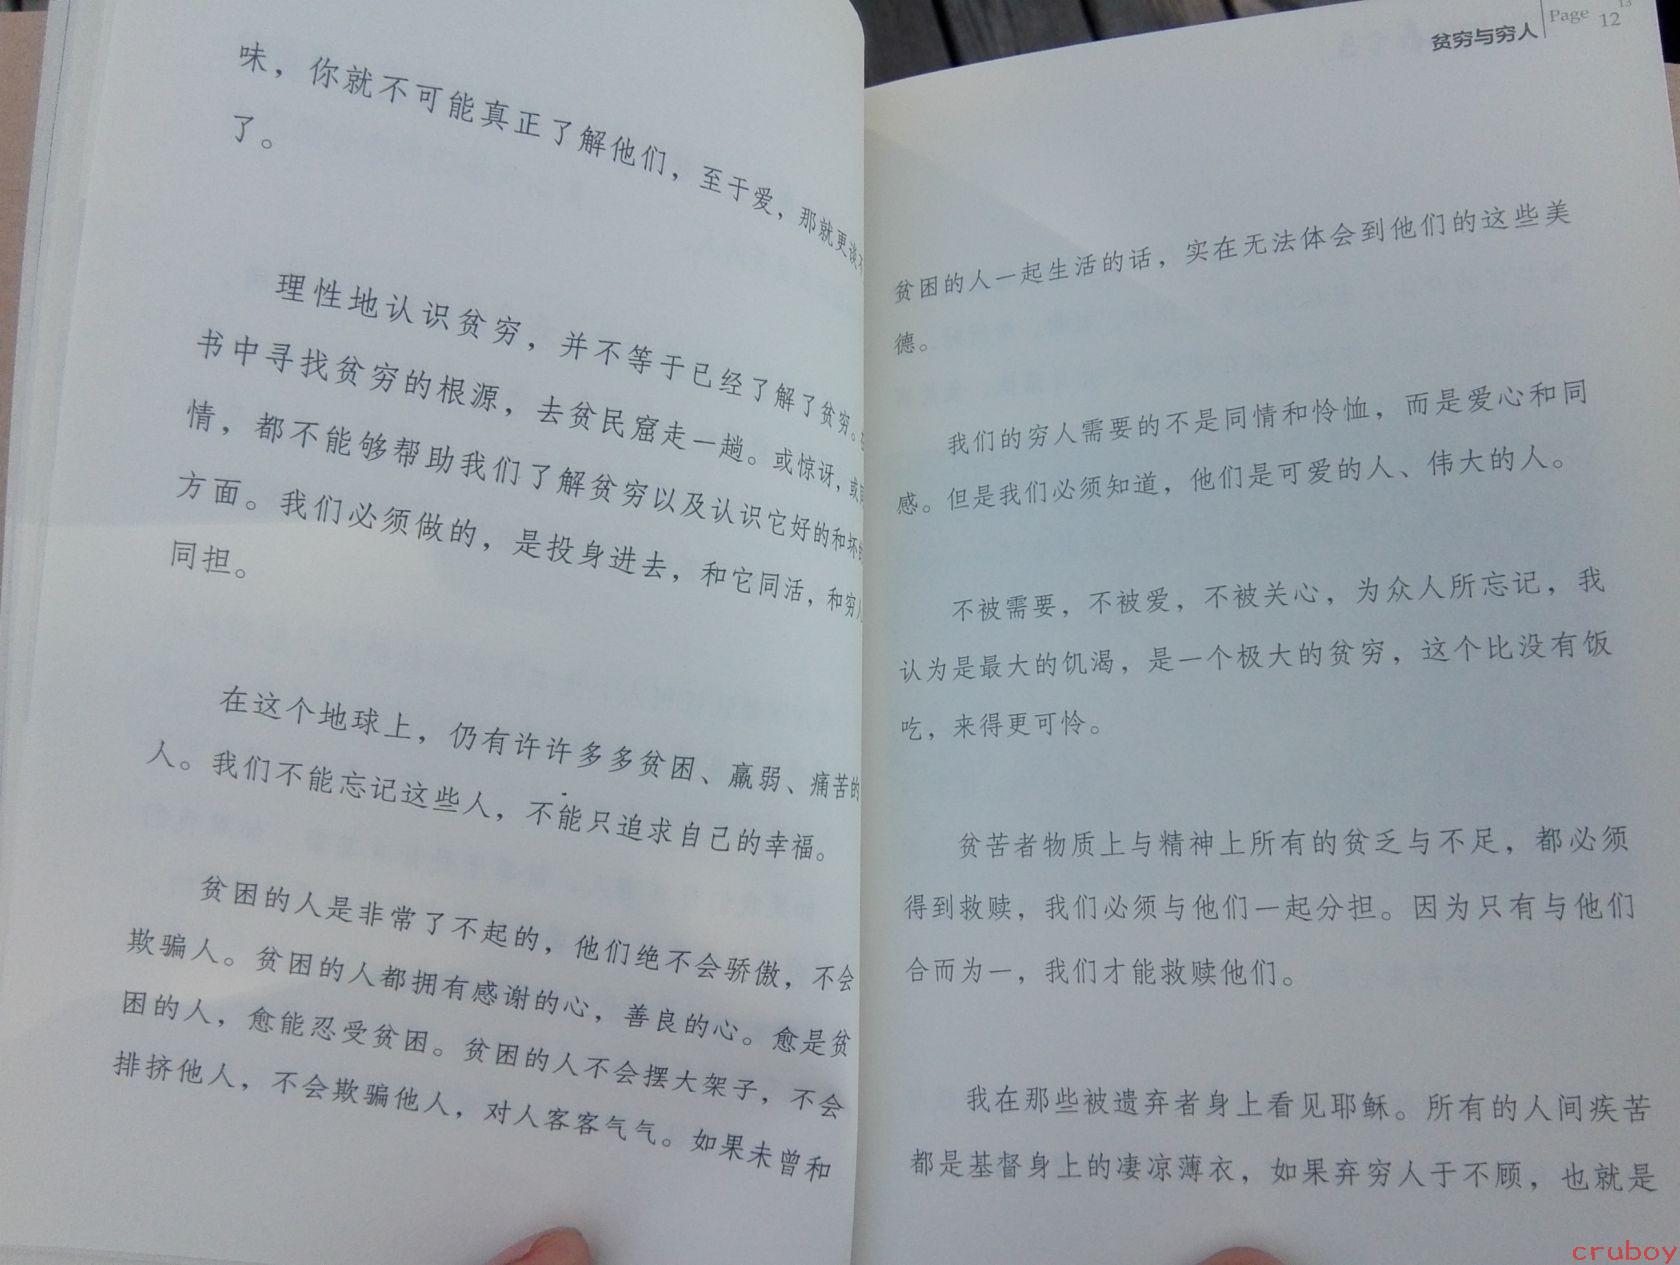 味，你就不可能真正了解他们，至于爱，那就更谈不
了。
理性地认识贫穷，并不等于已经了解了贫穷。
书中寻找贫穷的根源，去贫民窟走一趟。或惊讶，或
情，都不能够帮助我们了解贫穷以及认识它好的和坏的
方面。我们必须做的，是投身进去，和它同活，和穷人
同担。
在这个地球上，仍有许许多多贫困、羸弱、痛苦的
人。我们不能忘记这些人，不能只追求自己的幸福。
贫困的人是非常了不起的，他们绝不会骄傲，不会
欺骗人。贫困的人都拥有感谢的心，善良的心。愈是贫
困的人，愈能忍受贫困。贫困的人不会摆大架子，不会
排挤他人，不会欺骗他人，对人客客气气。如果未曾和
贫穷与穷人 Page 12 13
贫困的人一起生活的话，实在无法体会到他们的这些美
德。
我们的穷人需要的不是同情和怜恤，而是爱心和同
感。但是我们必须知道，他们是可爱的人、伟大的人。
不被需要，不被爱，不被关心，为众人所忘记，我
认为是最大的饥渴，是一个极大的贫穷，这个比没有饭
吃，来得更可怜。
贫苦者物质上与精神上所有的贫乏与不足，都必须
得到救赎，我们必须与他们一起分担。因为只有与他们
合而为一，我们才能救赎他们。
我在那些被遗弃者身上看见耶稣。所有的人间疾苦
都是基督身上的凄凉薄衣，如果弃穷人于不顾，也就是
cruboy